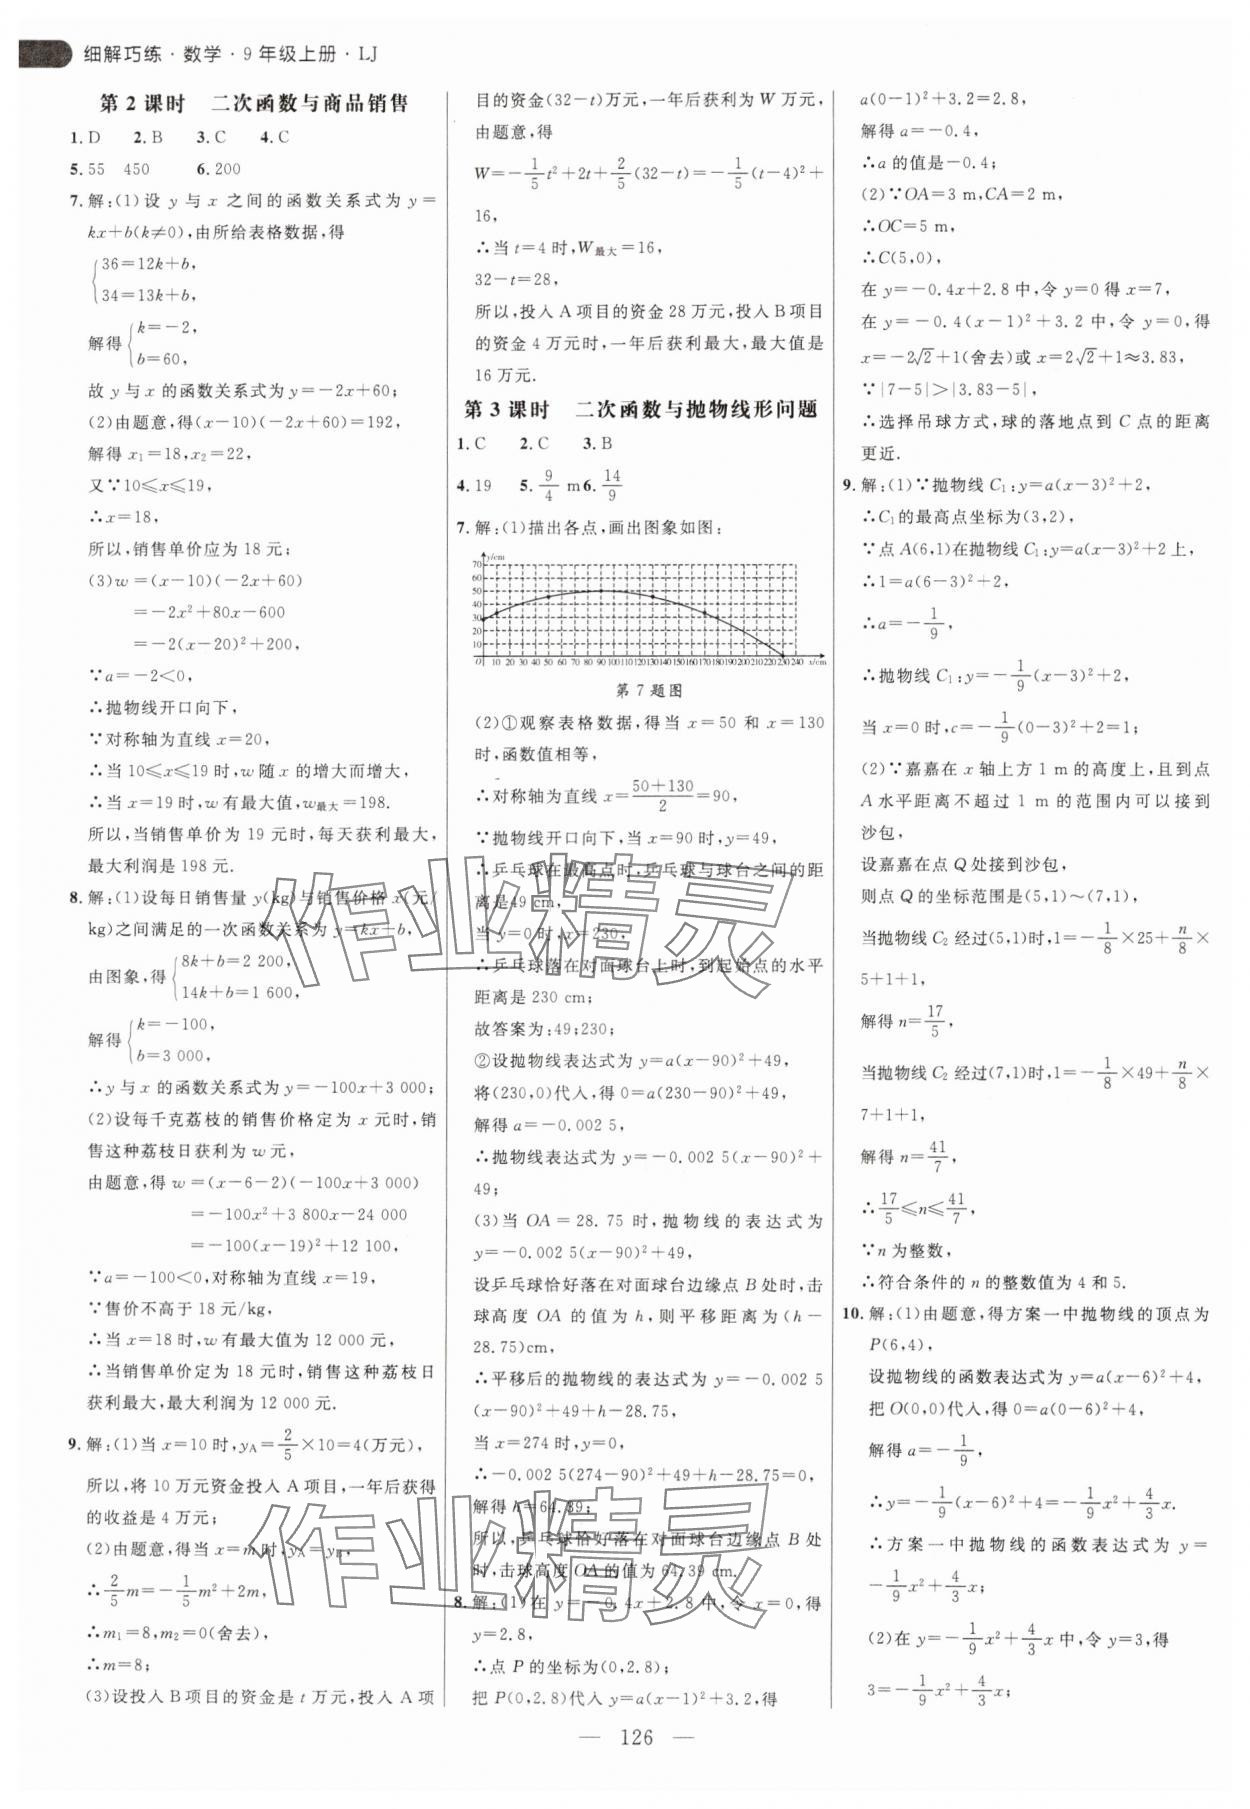 细解巧练·数学·9年级上册·LJ
第2课时 二次函数与商品销售
1. D 2. B 3. C 4. C
5. 55 450 6. 200
7. 解:(1)设 y 与 x 之间的函数关系式为 y=
kx+b(k≠0),由所给表格数据,得
{36=12k+b,
34=13k+b,
解得{k=-2,
b=60,
故 y 与 x 的函数关系式为 y=-2x+60;
(2)由题意,得(x-10)(-2x+60)=192,
解得 x₁=18,x₂=22,
又∵10≤x≤19,
∴x=18,
所以,销售单价应为 18 元;
(3)w=(x-10)(-2x+60)
=-2x²+80x-600
=-2(x-20)²+200,
∵a=-2<0,
∴抛物线开口向下,
∵对称轴为直线 x=20,
∴当 10≤x≤19 时,w 随 x 的增大而增大,
∴当 x=19 时,w 有最大值,w最大=198.
所以,当销售单价为 19 元时,每天获利最大,
最大利润是 198 元.
8. 解:(1)设每日销售量 y(kg)与销售价格 x(元/
kg)之间满足的一次函数关系为 y=kx+b,
由图象,得{8k+b=2 200,
14k+b=1 600,
解得{k=-100,
b=3 000,
∴y 与 x 的函数关系式为 y=-100x+3 000;
(2)设每千克荔枝的销售价格定为 x 元时,销
售这种荔枝日获利为 w 元,
由题意,得 w=(x-6-2)(-100x+3 000)
=-100x²+3 800x-24 000
=-100(x-19)²+12 100,
∵a=-100<0,对称轴为直线 x=19,
∵售价不高于 18 元/kg,
∴当 x=18 时,w 有最大值为 12 000 元,
∴当销售单价定为 18 元时,销售这种荔枝日
获利最大,最大利润为 12 000 元.
9. 解:(1)当 x=10 时,yA=2/5×10=4(万元),
所以,将 10 万元资金投入 A 项目,一年后获得
的收益是 4 万元;
(2)由题意,得当 x=m 时,yA=yB,
∴2/5m=-1/5m²+2m,
∴m₁=8,m₂=0(舍去),
∴m=8;
(3)设投入 B 项目的资金是 t 万元,投入 A 项
目的资金(32-t)万元,一年后获利为 W 万元,
由题意,得
W=-1/5t²+2t+2/5(32-t)=-1/5(t-4)²+
16,
∴当 t=4 时,W最大=16,
32-t=28,
所以,投入 A 项目的资金 28 万元,投入 B 项目
的资金 4 万元时,一年后获利最大,最大值是
16 万元.
第3课时 二次函数与抛物线形问题
1. C 2. C 3. B
4. 19 5. 9/4 m 6. 14/9
7. 解:(1)描出各点,画出图象如图:
y/cm
70
60
50
40
30
20
10
O 10 20 30 40 50 60 70 80 90 100 110 120 130 140 150 160 170 180 190 200 210 220 230 240 x/cm
第7题图
(2)①观察表格数据,得当 x=50 和 x=130
时,函数值相等,
∴对称轴为直线 x=(50+130)/2=90,
∵抛物线开口向下,当 x=90 时,y=49,
∴乒乓球在最高点时,乒乓球与球台之间的距
离是49 cm,
当 y=0时,x=230,
∴乒乓球落在对面球台上时,到起始点的水平
距离是 230 cm;
故答案为:49;230;
②设抛物线表达式为 y=a(x-90)²+49,
将(230,0)代入,得 0=a(230-90)²+49,
解得 a=-0.002 5,
∴抛物线表达式为 y=-0.002 5(x-90)²+
49;
(3)当 OA=28.75 时,抛物线的表达式为
y=-0.002 5(x-90)²+49,
设乒乓球恰好落在对面球台边缘点 B 处时,击
球高度 OA 的值为 h,则平移距离为(h-
28.75)cm,
∴平移后的抛物线的表达式为 y=-0.002 5
(x-90)²+49+h-28.75,
当 x=274 时,y=0,
∴-0.002 5(274-90)²+49+h-28.75=0,
解得 h=64.39;
所以,乒乓球恰好落在对面球台边缘点 B 处
时,击球高度 OA 的值为 64.39 cm.
8. 解:(1)在 y=-0.4x+2.8 中,令 x=0,得
y=2.8,
∴点 P 的坐标为(0,2.8);
把 P(0,2.8)代入 y=a(x-1)²+3.2,得
a(0-1)²+3.2=2.8,
解得 a=-0.4,
∴a 的值是-0.4;
(2)∵OA=3 m,CA=2 m,
∴OC=5 m,
∴C(5,0),
在 y=-0.4x+2.8 中,令 y=0 得 x=7,
在 y=-0.4(x-1)²+3.2 中,令 y=0,得
x=-2√2+1(舍去)或 x=2√2+1≈3.83,
∵|7-5|>|3.83-5|,
∴选择吊球方式,球的落地点到 C 点的距离
更近.
9. 解:(1)∵抛物线 C₁:y=a(x-3)²+2,
∴C₁的最高点坐标为(3,2),
∵点 A(6,1)在抛物线 C₁:y=a(x-3)²+2 上,
∴1=a(6-3)²+2,
∴a=-1/9,
∴抛物线 C₁:y=-1/9(x-3)²+2,
当 x=0 时,c=-1/9(0-3)²+2=1;
(2)∵嘉嘉在 x 轴上方 1 m 的高度上,且到点
A 水平距离不超过 1 m 的范围内可以接到
沙包,
设嘉嘉在点 Q 处接到沙包,
则点 Q 的坐标范围是(5,1)~(7,1),
当抛物线 C₂ 经过(5,1)时,1=-1/8×25+n/8×
5+1+1,
解得 n=17/5,
当抛物线 C₂ 经过(7,1)时,1=-1/8×49+n/8×
7+1+1,
解得 n=41/7,
∴17/5≤n≤41/7,
∵n 为整数,
∴符合条件的 n 的整数值为 4 和 5.
10. 解:(1)由题意,得方案一中抛物线的顶点为
P(6,4),
设抛物线的函数表达式为 y=a(x-6)²+4,
把 O(0,0)代入,得 0=a(0-6)²+4,
解得 a=-1/9,
∴y=-1/9(x-6)²+4=-1/9x²+4/3x.
∴方案一中抛物线的函数表达式为 y=
-1/9x²+4/3x;
(2)在 y=-1/9x²+4/3x 中,令 y=3,得
3=-1/9x²+4/3x;
— 126 —
作业精灵
作业精灵